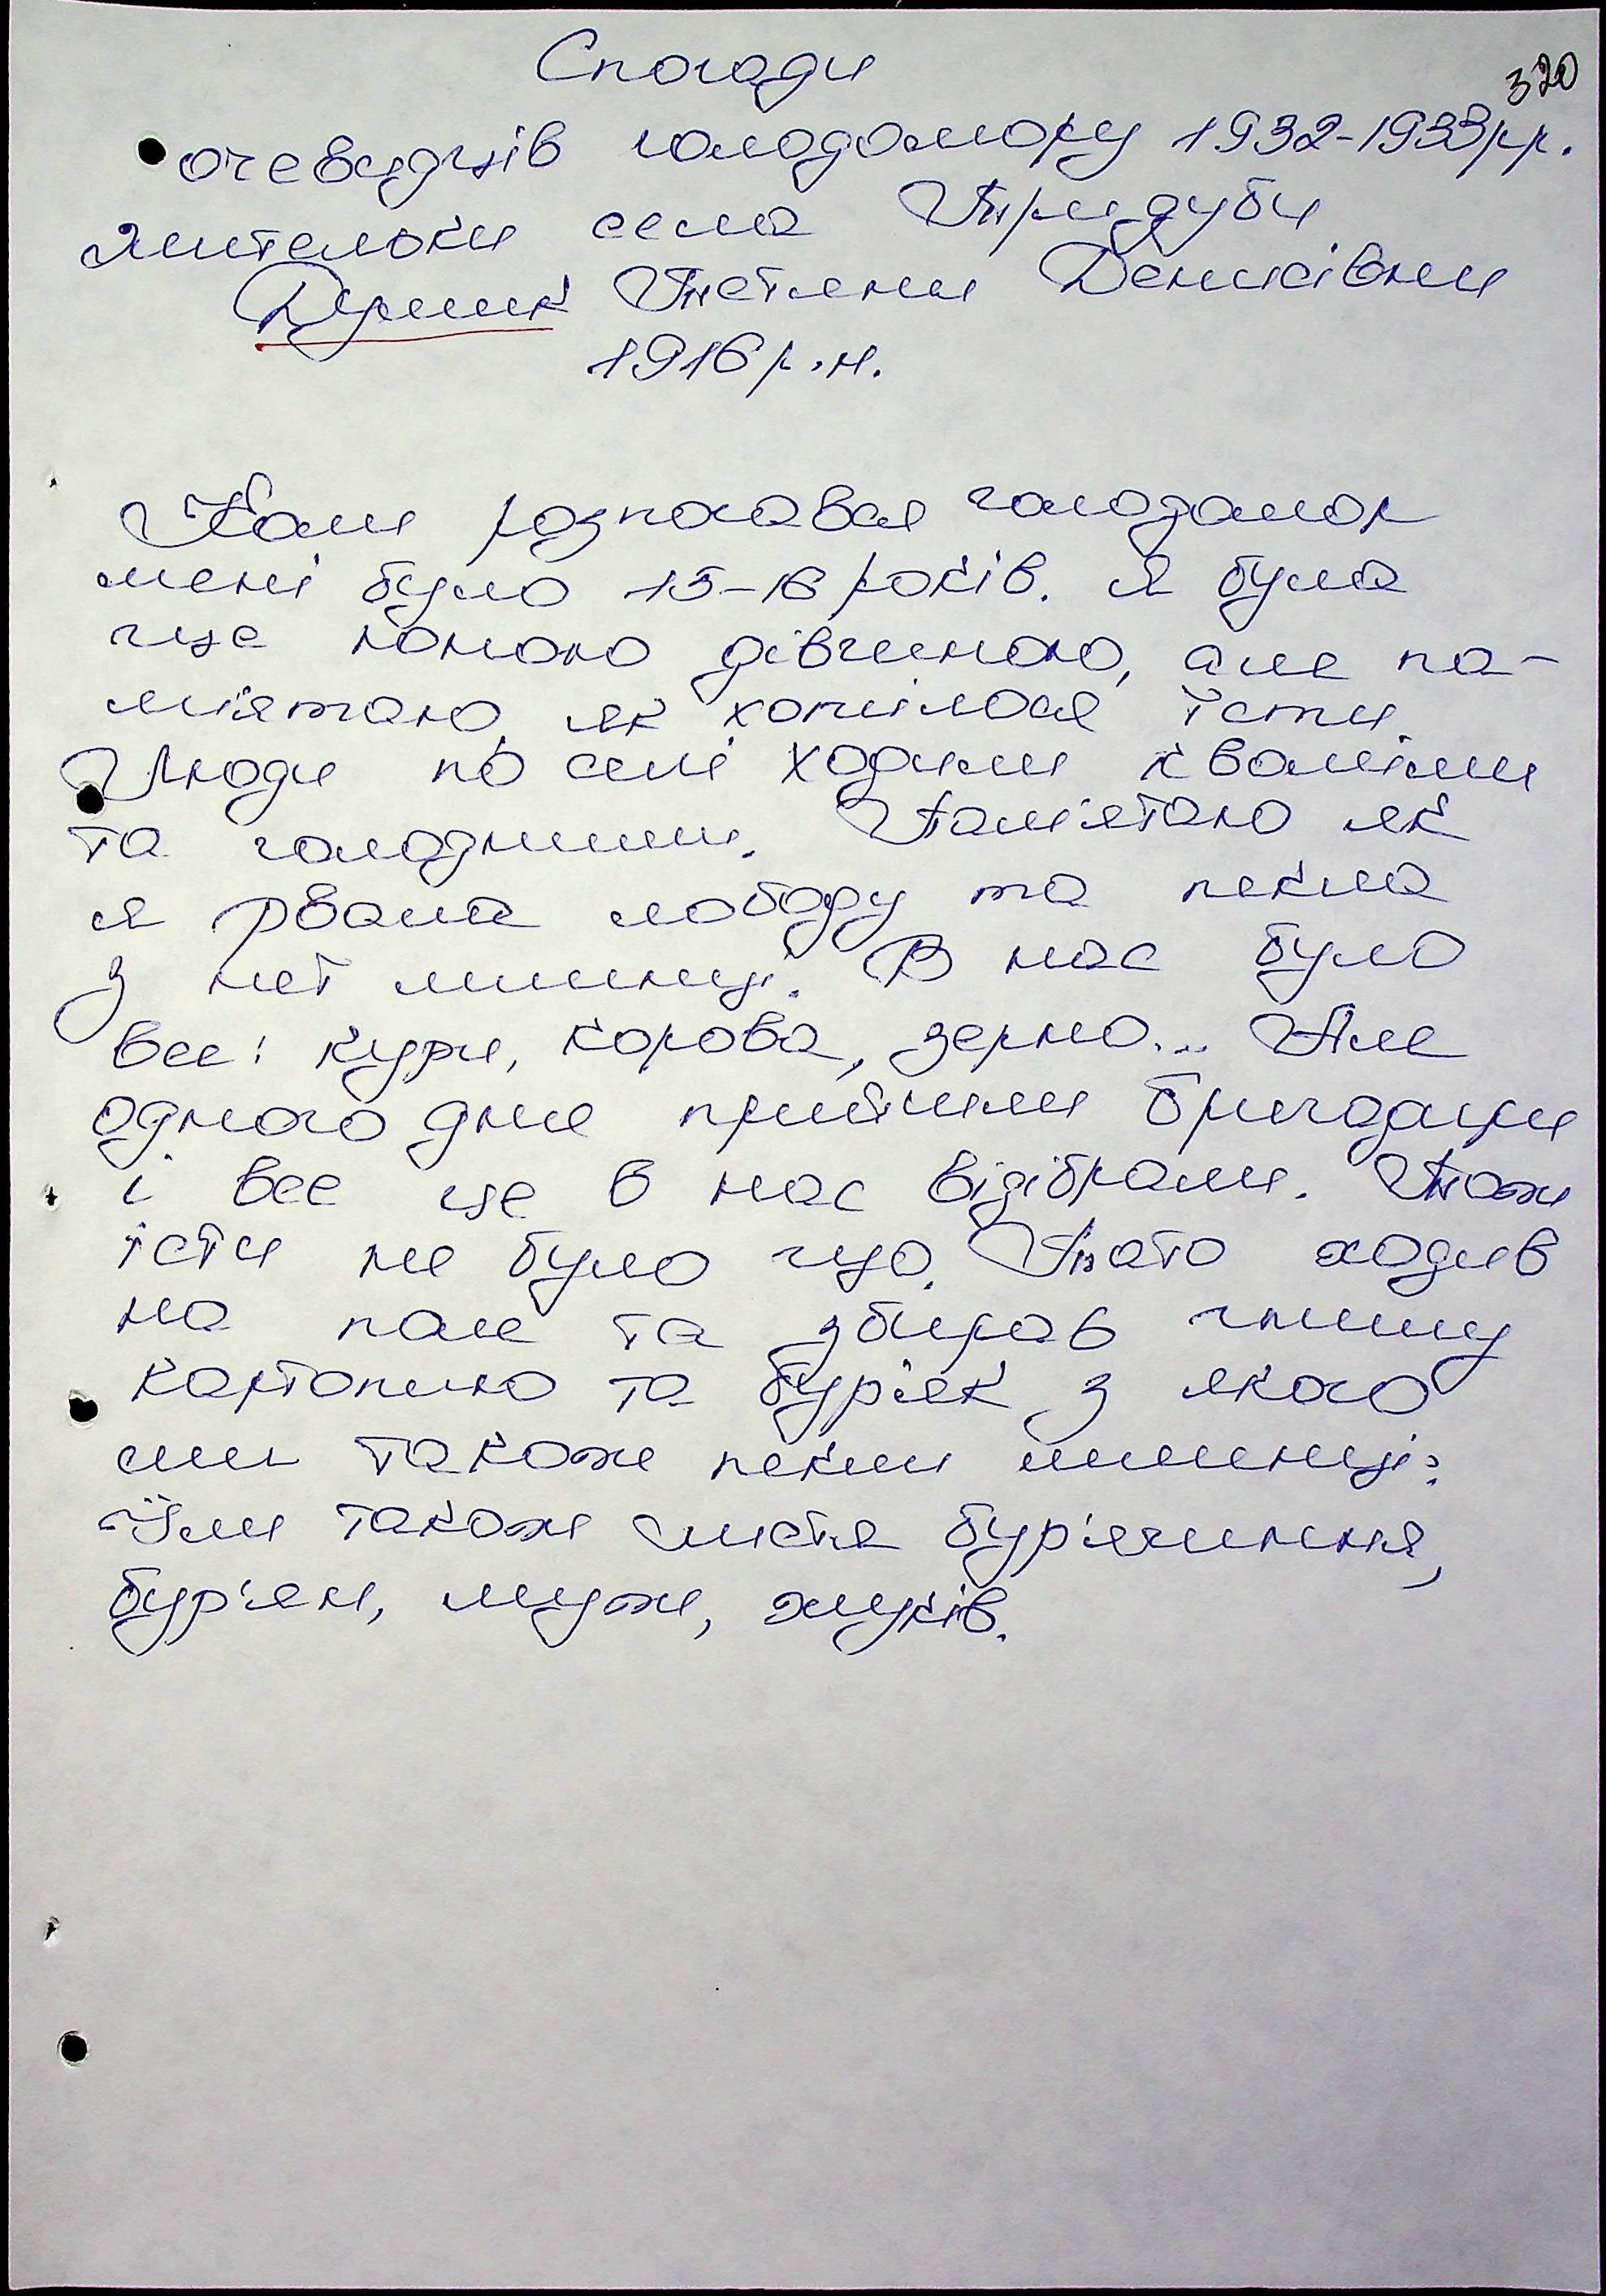 Спогади
320
очевидців голодомору 1932-1933рр.
жительки села Тридуби
Тетяни Денисівни
1916р.н.
Коли розпочався голодомор
мені було 15-16 років. Я була
ще юною дівчиною, але па-
м'ятаю, як хотілося їсти.
Люди по селі ходили кволими
та голодними. Пам'ятаю як
я рвала лободу та пекла
з неї млинці. В нас було
все: кури, корова, зерно... Але
одного дня прийшли бригадири
і все це в нас відібрали. Тож
їсти не було що. Тато ходив
на поле та збирав гнилу
картоплю та бур'як з якого
ми також пекли млинці.
Їли також листя бур'ячиння,
бур'ян, муж, жуків.